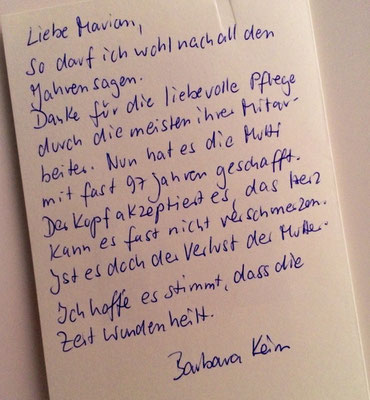 Liebe Marion,
so darf ich wohl nach all den
Jahren sagen.
Danke für die liebevolle Pflege
durch die meisten ihrer Mitar-
beiter. Nun hat es die Mutti
mit fast 97 Jahren geschafft.
Der Kopf akzeptiert es, das Herz
kann es fast nicht verschmerzen.
Ist es doch der Verlust der Mutter.
Ich hoffe es stimmt, dass die
Zeit Wunden heilt.
Barbara Keim